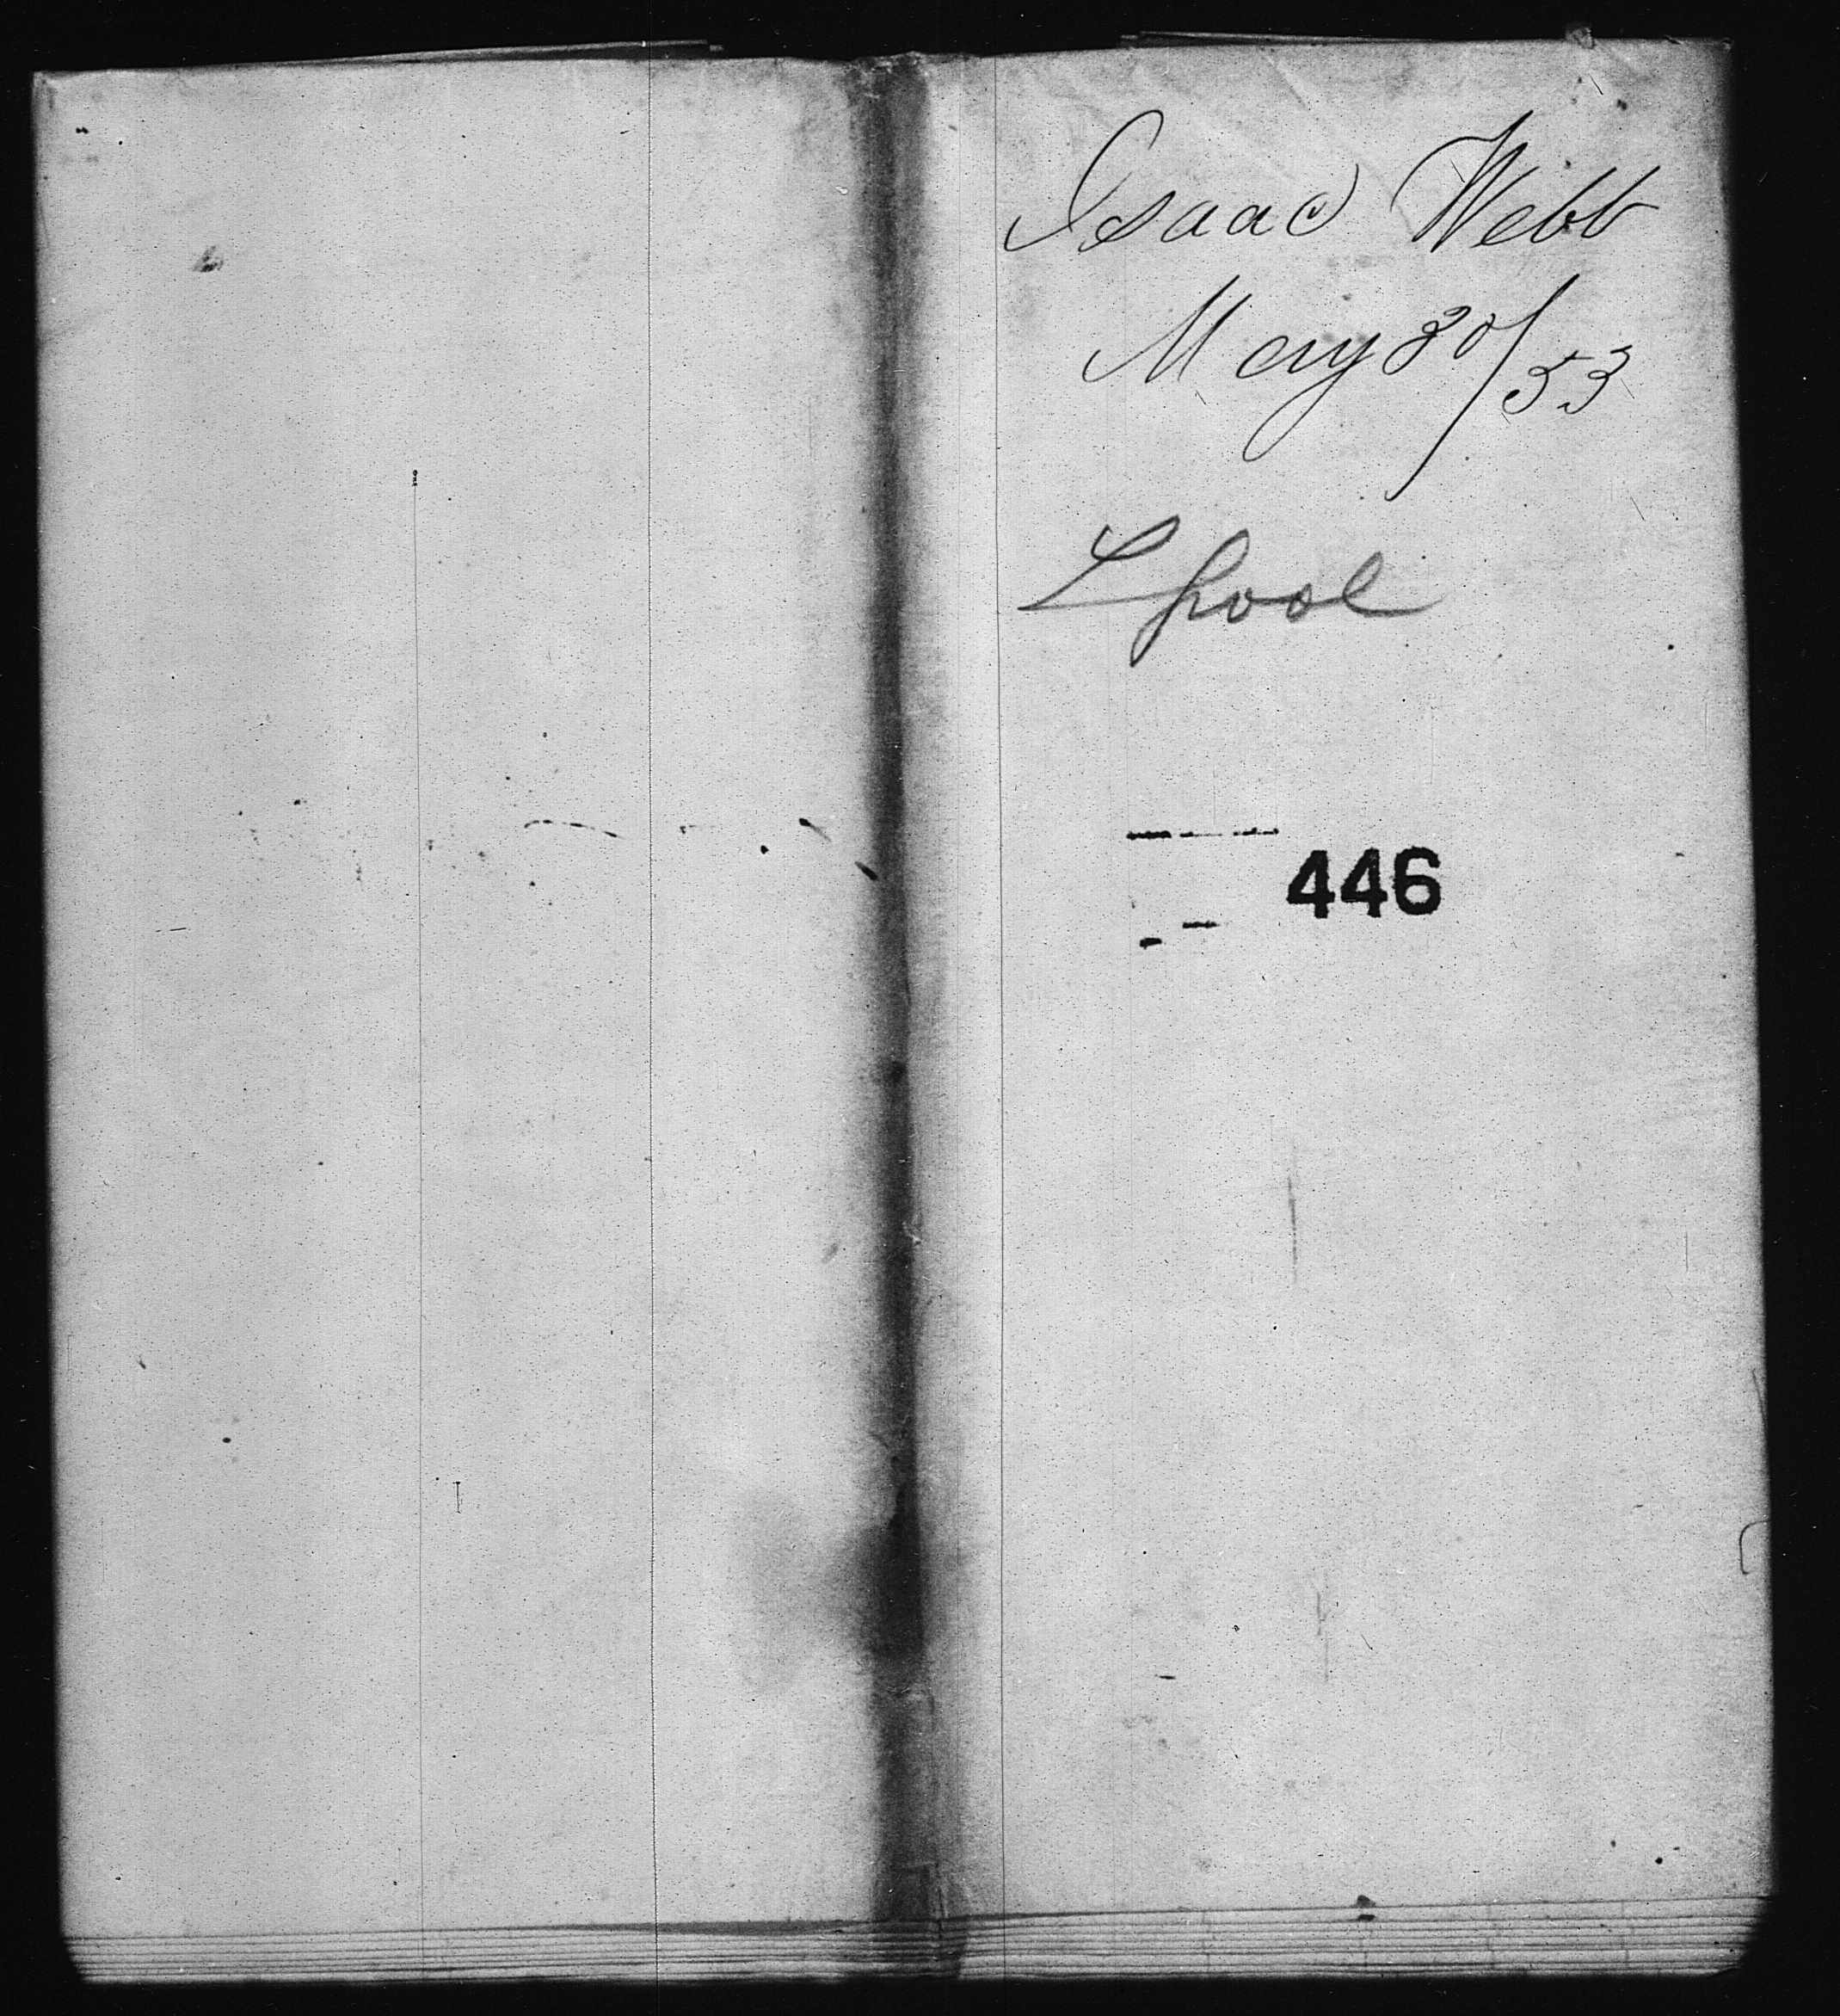 Isaac Webb
May 30/53
L pool
446